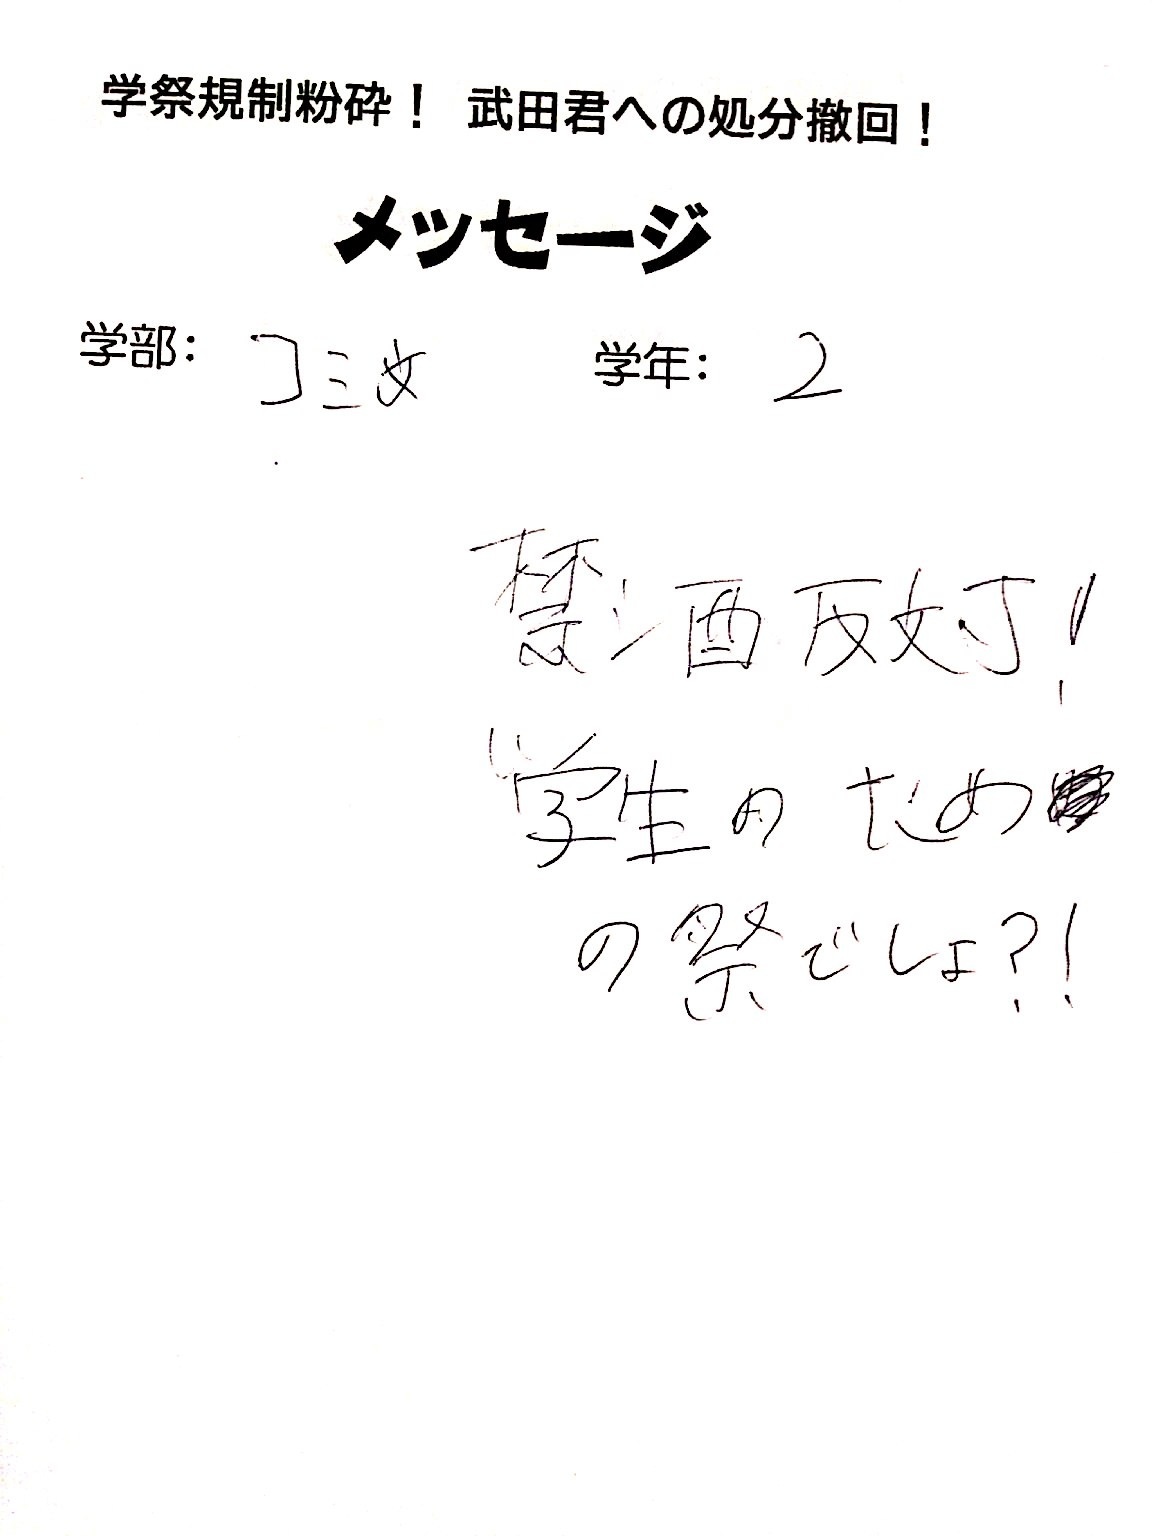 学祭規制粉砕！ 武田君への処分撤回！
メッセージ
学部： コミ文 学年： 2
禁酒反対！
学生のため
の祭でしょ？！